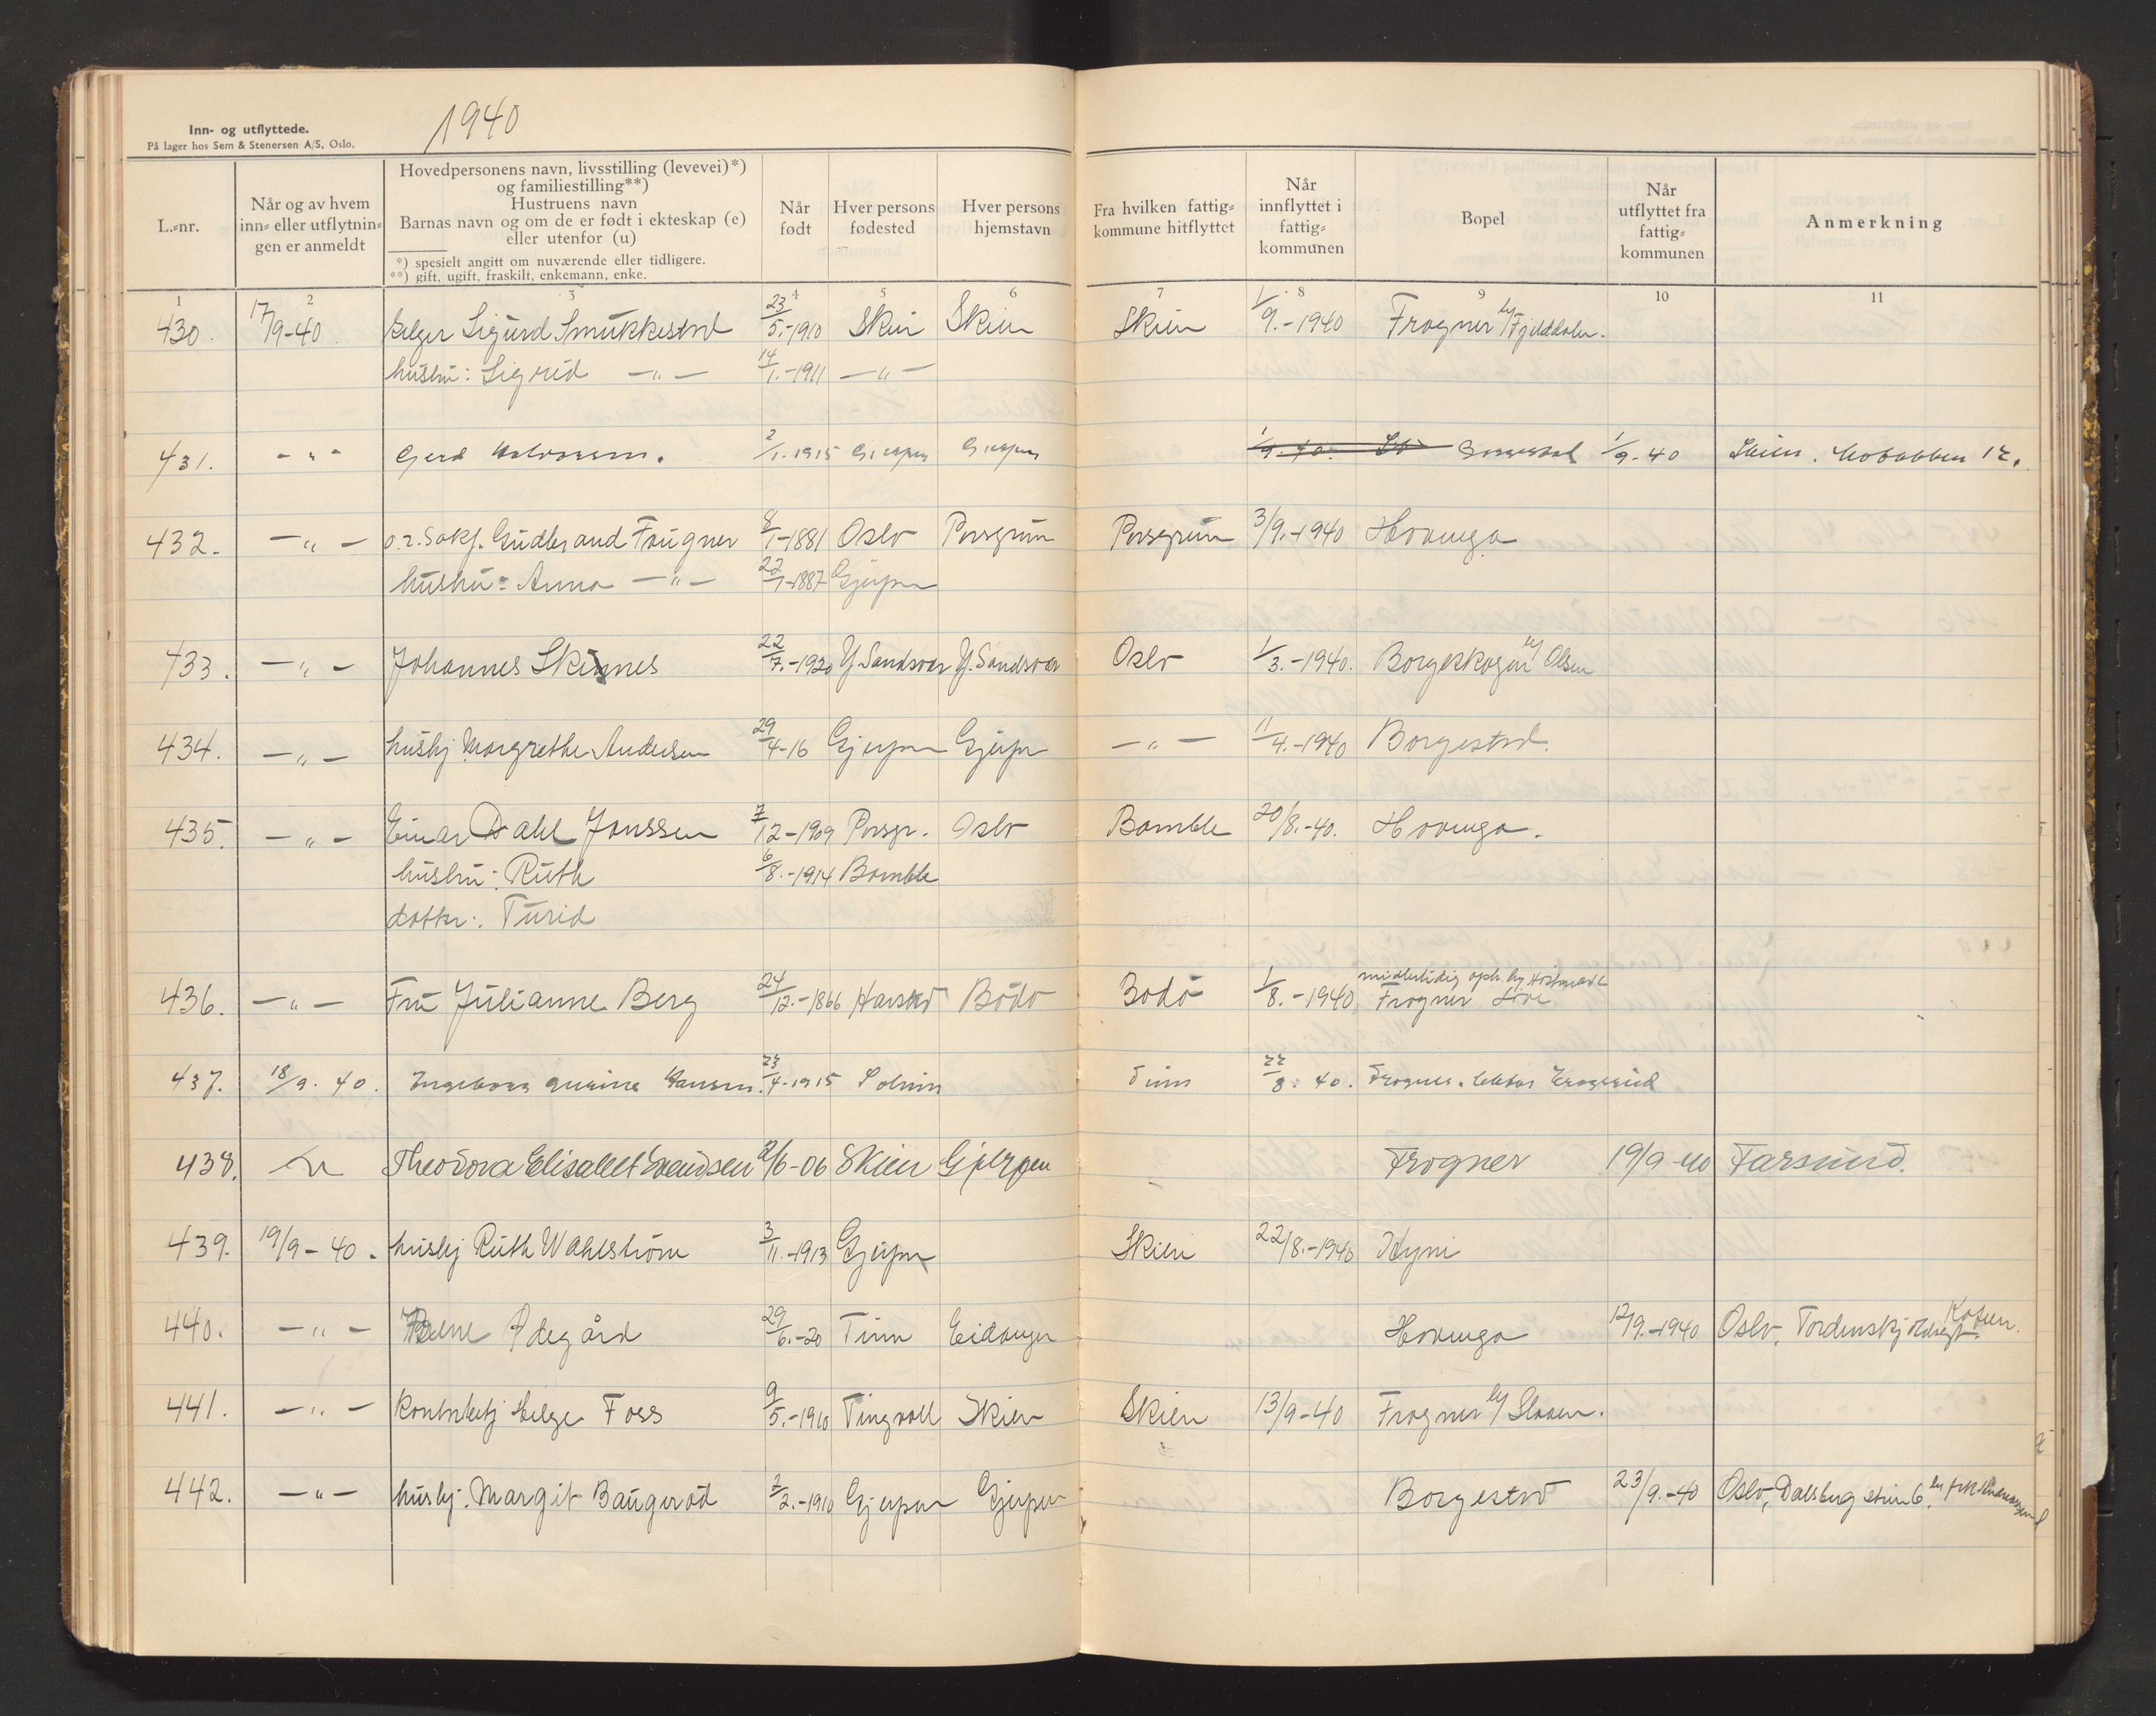 1940
Inn- og utflyttede.
På lager hos Sem & Stenersen A/S, Oslo.
L.-nr.
Når og av hvem inn- eller utflytnin- gen er anmeldt
Hovedpersonens navn, livsstilling (levevei)*)
og familiestilling**)
Hustruens navn
Barnas navn og om de er født i ekteskap (e)
eller utenfor (u)
*) spesielt angitt om nuværende eller tidligere.
**) gift, ugift, fraskilt, enkemann, enke.
Når født
Hver persons fødested
Hver persons hjemstavn
Fra hvilken fattig- kommune hitflyttet
Når innflyttet i fattig- kommunen
Bopel
Når utflyttet fra fattig- kommunen
Anmerkning
1 2 3 4 5 6 7 8 9 10 11
430. 17/9-40. Sigurd Smukkestad 23/5.-1910 Skien Skien Skien 1/9.-1940 Frogner
hustru: Sigrid —"— 14/1.-1911 —"—
431. -"- Gerd 2/1.1915 Gjerpen Gjerpen 1/9.40. Borgestad 1/9-40 Skien.
432. —"— Gudbrand Frugner 8/1-1881 Oslo Porsgrun Porsgrun 3/9.-1940 Hovenga
hustru: Anna —"— 22/1-1887 Gjerpen
433. —"— Johannes Skinnes 22/7.-1920 Y. Sandsvær Y. Sandsvær Oslo 1/3.-1940. Borgeskogen Olsen
434. —"— hushj Margrethe Andersen 29/4-16 Gjerpen Gjerpen —"— 11/4.-1940 Borgestad.
435. —"— Einar Dahl Jonssen 7/12-1909 Porsgr. Oslo Bamble 20/8.-40. Hovenga.
hustru: Ruth 6/8.-1914 Bamble
datter: Turid
436. —"— Fru Julianne Berg 24/12.-1866 Harstad Bodø Bodø 1/8.-1940 midlertidig oph. Frogner
437. 18/9.40. Ingeborg Hansen. 23/4-1915 Solum Tinn 22/8.40. Frogner.
438. Theodora Elisabet Svendsen 2/6-06 Skien Gjerpen Frogner 19/9-40 Farsund.
439. 19/9-40. hushj Ruth Wahlstrøm 3/11.-1913 Gjerpen Skien 22/8.-1940
440. —"— Ødegård 29/6.-20 Tinn Eidanger Hovenga 12/9.-1940 Oslo, Tordenskjoldsgt.
441. —"— Helge Foss 9/5.-1910 Tingvoll Skien Skien 13/9-40 Frogner
442. —"— hushj. Margit Baugerød 7/2.-1910 Gjerpen Gjerpen Borgestad 23/9.-40 Oslo, Dalsberg stien 6,